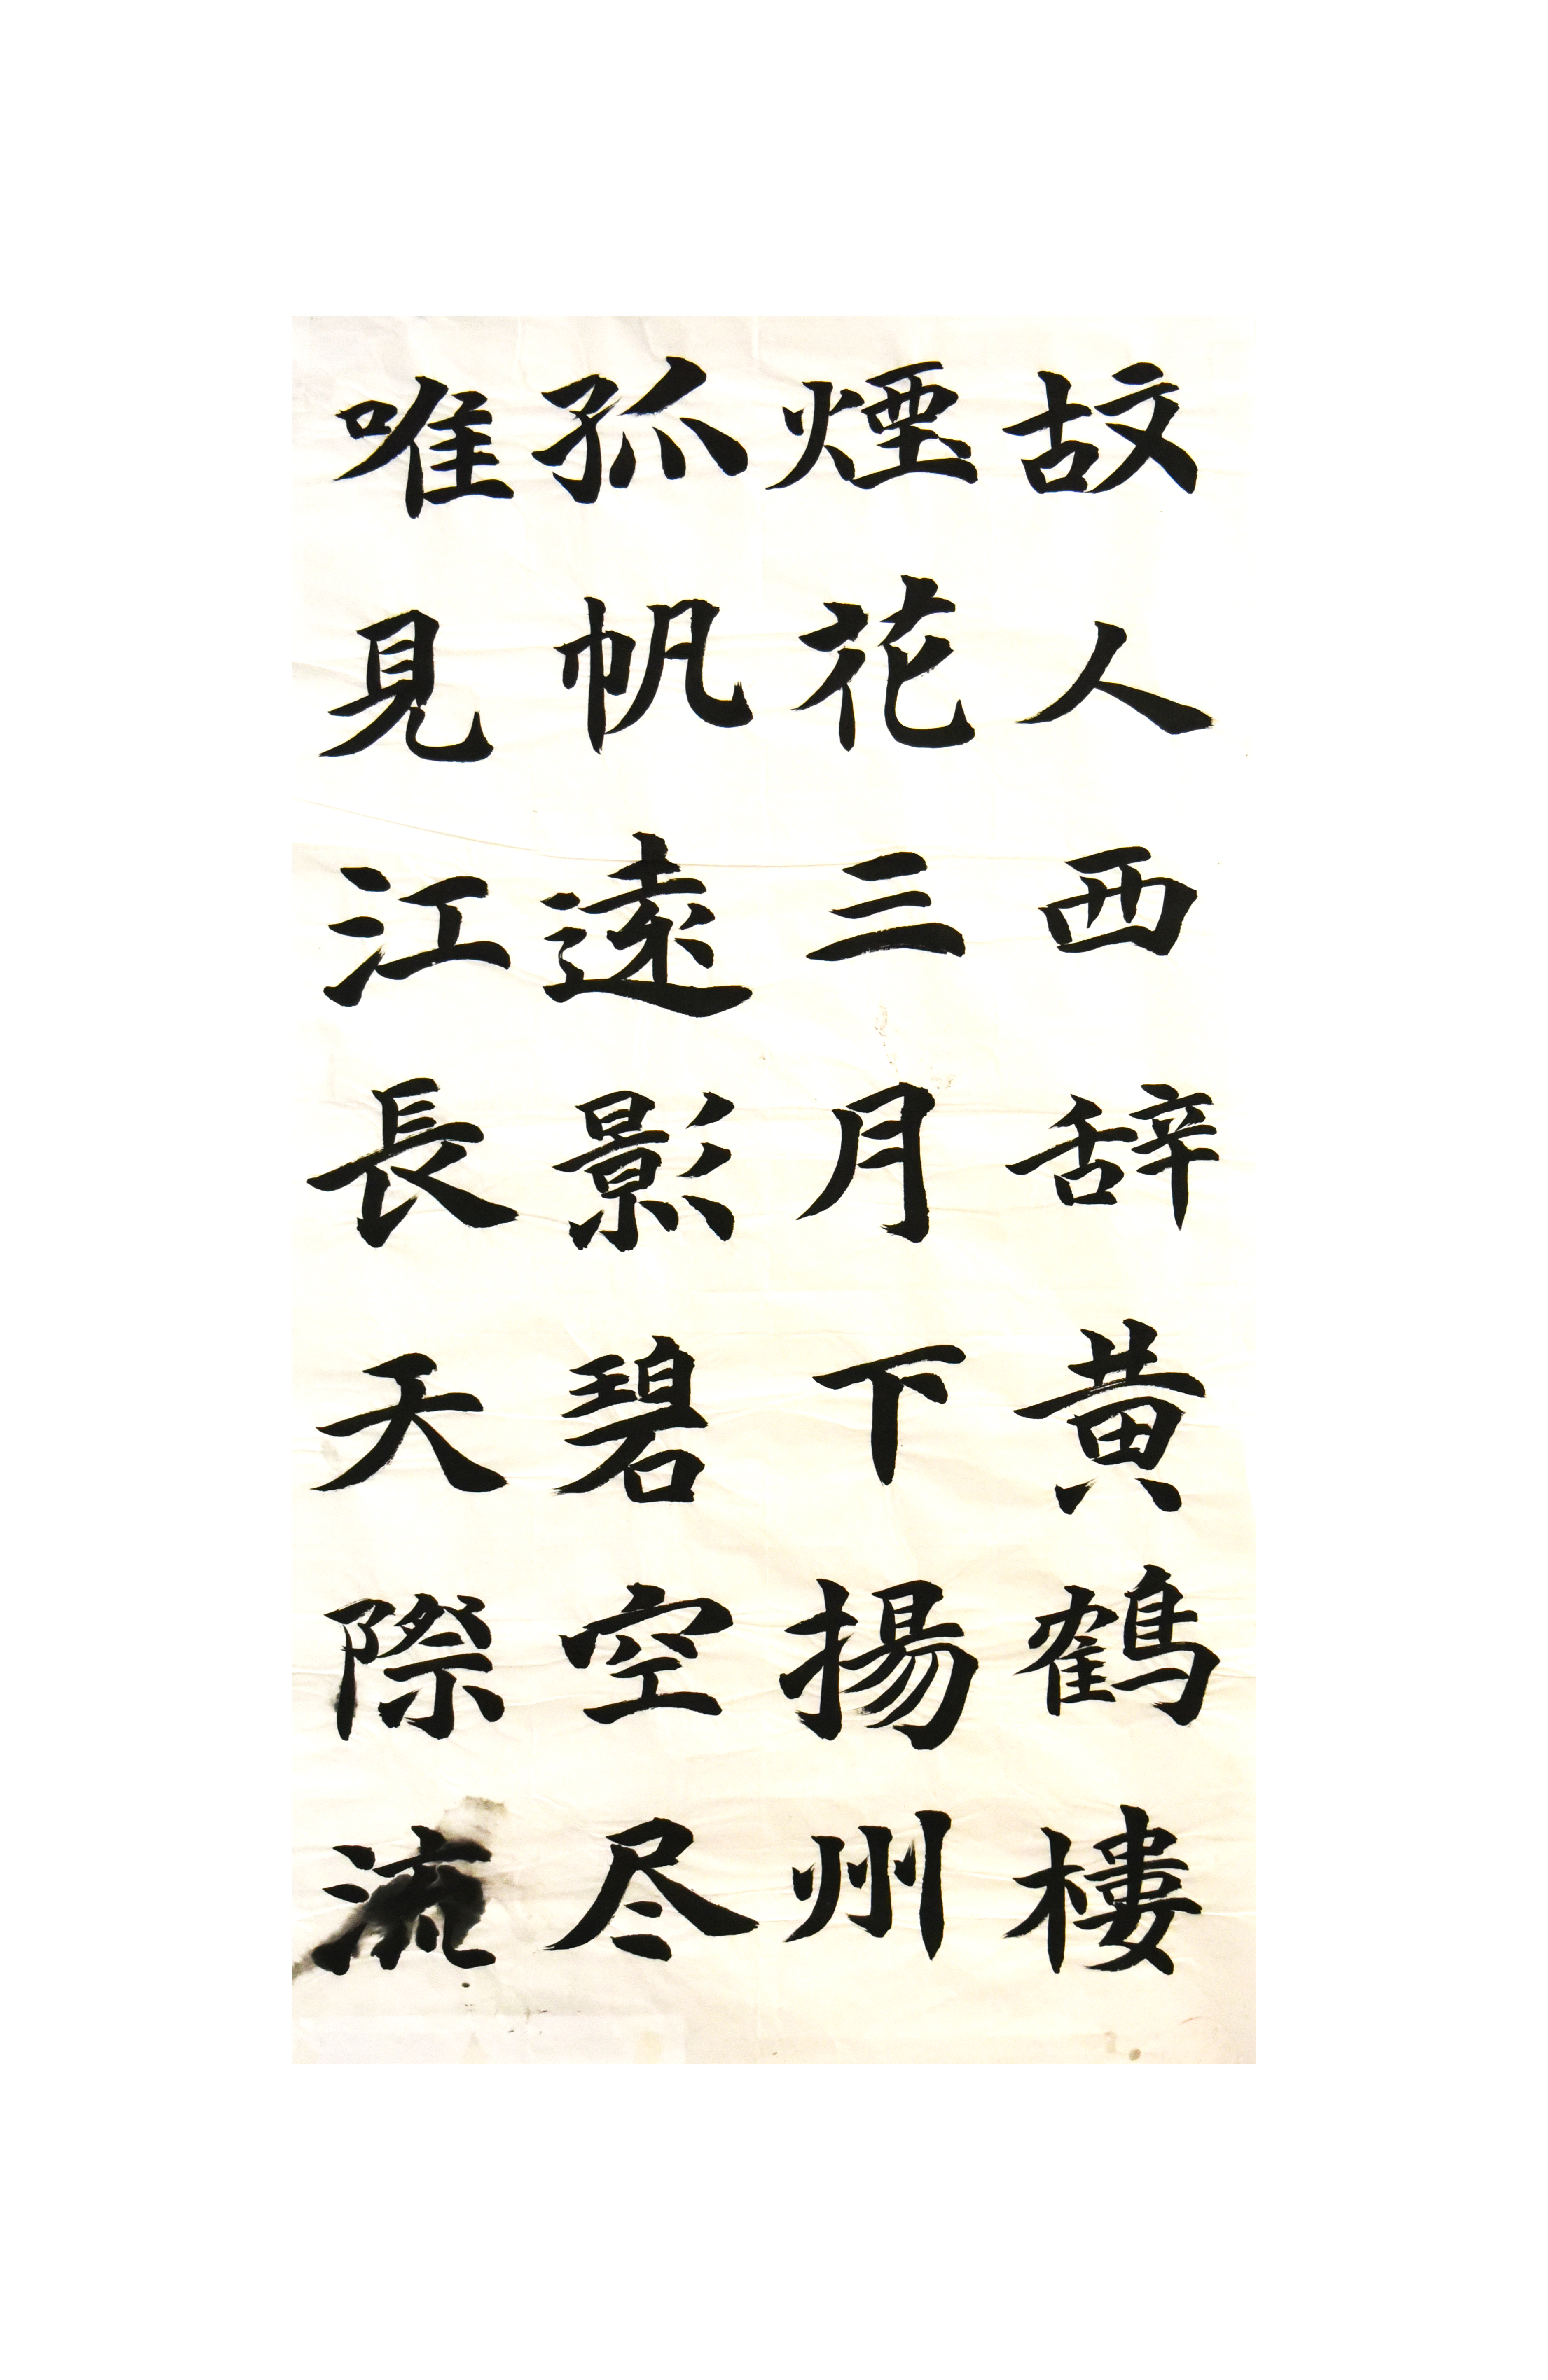 故人西辞黄鶴樓
煙花三月下揚州
孤帆遠影碧空尽
唯見江長天際流